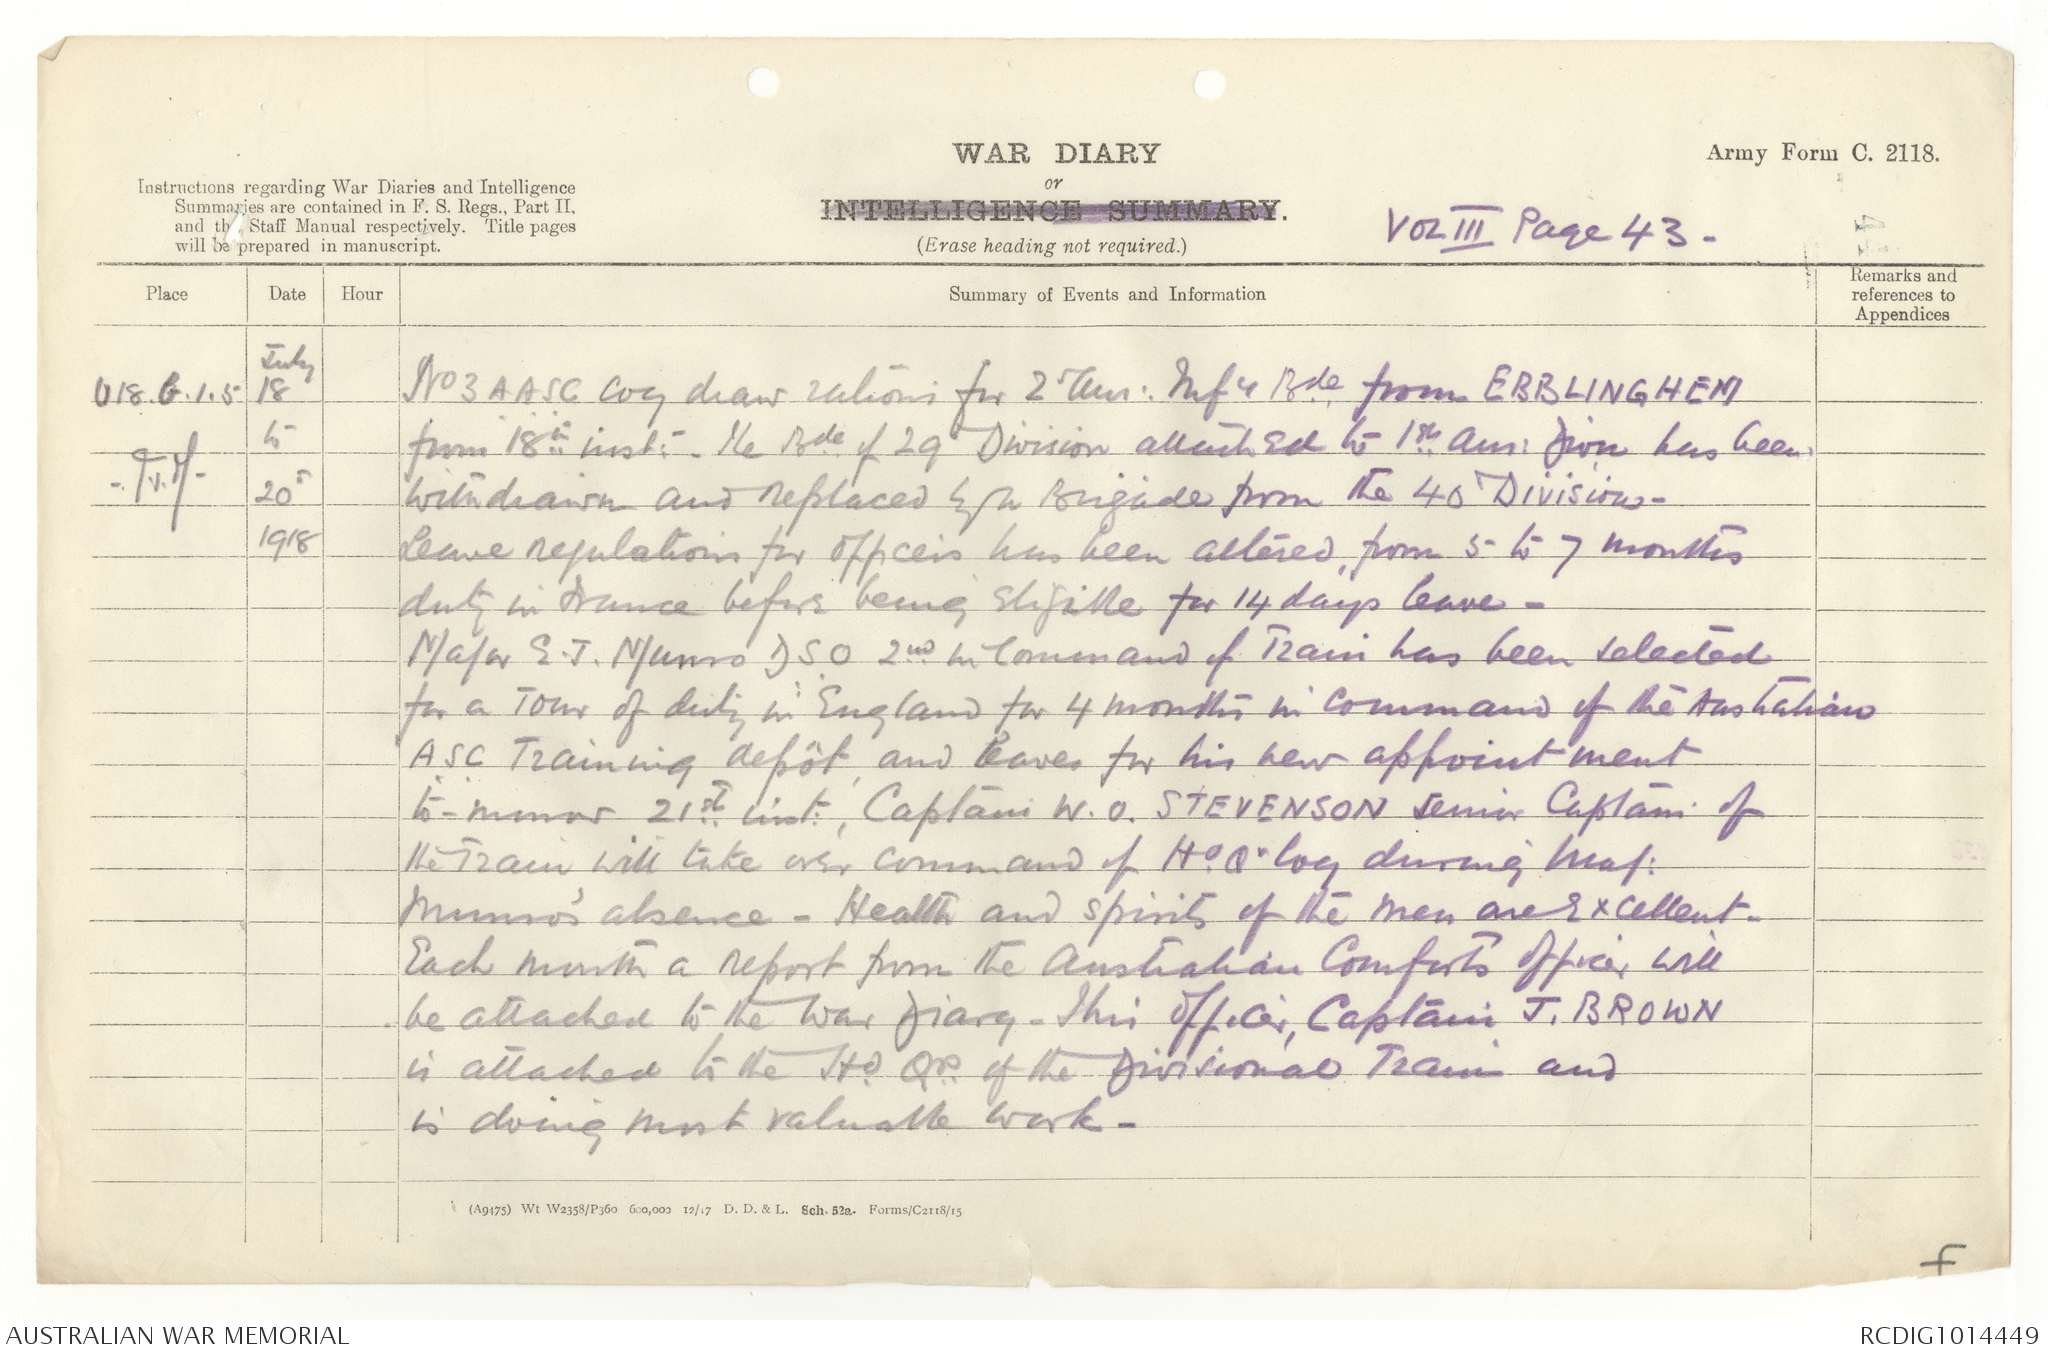 WAR DIARY
or
INTELLIGENCE SUMMARY.
(Erase heading not required.)
Army Form C. 2118.
Instructions regarding War Diaries and Intelligence
Summaries are contained in F. S. Regs., Part II,
and the Staff Manual respectively. Title pages
will be prepared in manuscript.
VOL III Page 43-
Place
Date
Hour
Summary of Events and Information
Remarks and
references to
Appendices
U18.b.1.5
July
18
to
20th
1918
No 3 AASC Coy draw rations for 2nd Aus: Infy Bde from EBBLINGHEM
from 18th inst: - The Bde of 29th Division attached to 1st Aus: Divn has been
withdrawn and replaced by a Brigade from the 40th Division-
Leave regulations for officers has been altered, from 5 to 7 months
duty in France before being eligible for 14 days leave -
Major E.J. Munro DSO 2nd in Command of Train has been selected
for a Tour of duty in England for 4 months in command of the Australian
ASC Training depôt, and leaves for his new appointment
to-morrow 21st inst:, Captain W. O. STEVENSON senior Captain of
the Train will take over command of Hd Qr Coy during Maj:
Munro's absence - Health and spirits of the men are excellent-
Each month a report from the Australian Comforts Officer will
be attached to the War Diary - This officer, Captain J. BROWN
is attached to the Hd Qrs of the Divisional Train and
is doing most valuable work -
(A9475) Wt W2358/P360 600,000 12/17 D. D. & L. Sch. 52a. Forms/C2118/15
AUSTRALIAN WAR MEMORIAL
RCDIG1014449